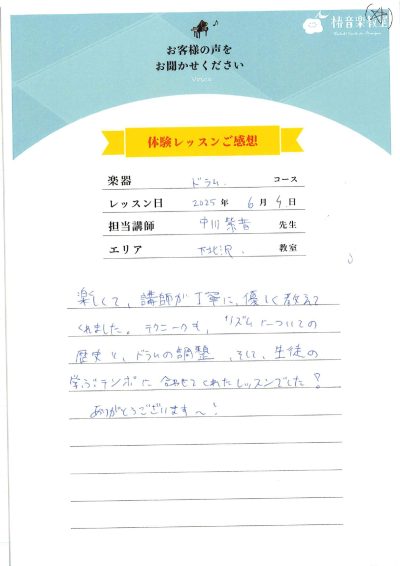 椿音楽教室
お客様の声を
お聞かせください
Voice
体験レッスンご感想
楽器 ドラム コース
レッスン日 2025 年 6 月 4 日
担当講師 中川 紫音 先生
エリア 下北沢 教室
楽しくて、講師が丁寧に、優しく教えて
くれました。テクニークも、リズムについての
歴史と、ドラムの調整、そして、生徒の
学ぶテンポに合わせてくれたレッスンでした!
ありがとうございます〜!